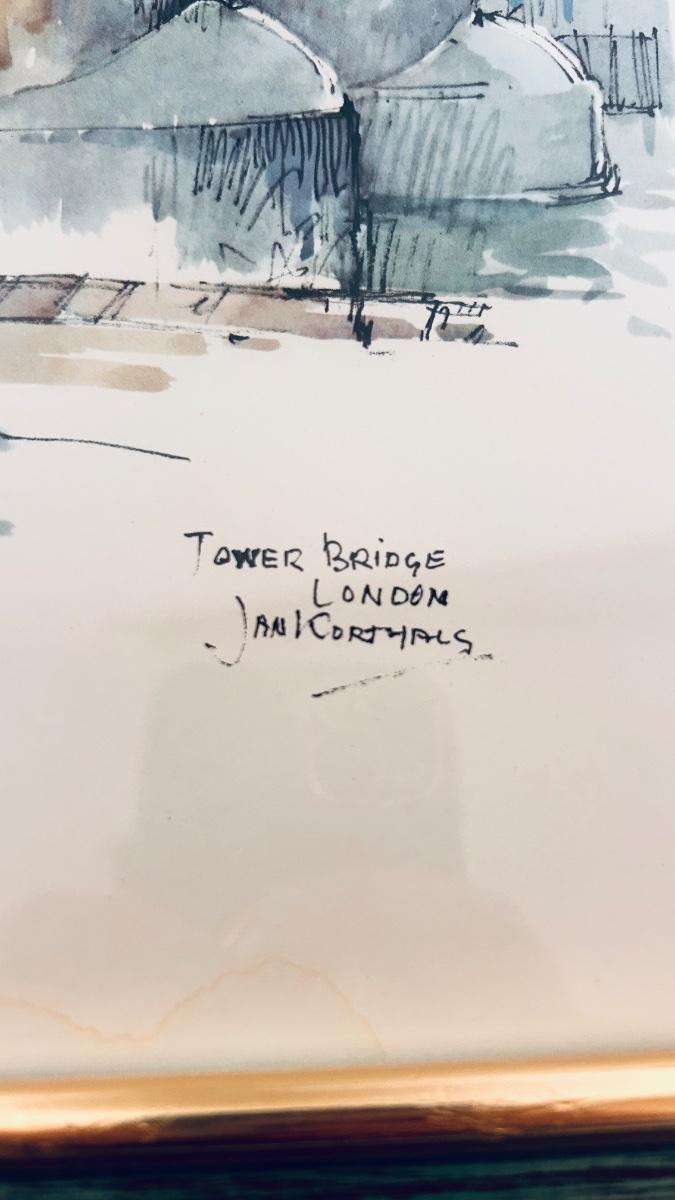 TOWER BRIDGE
LONDON
JAN KORTHALS